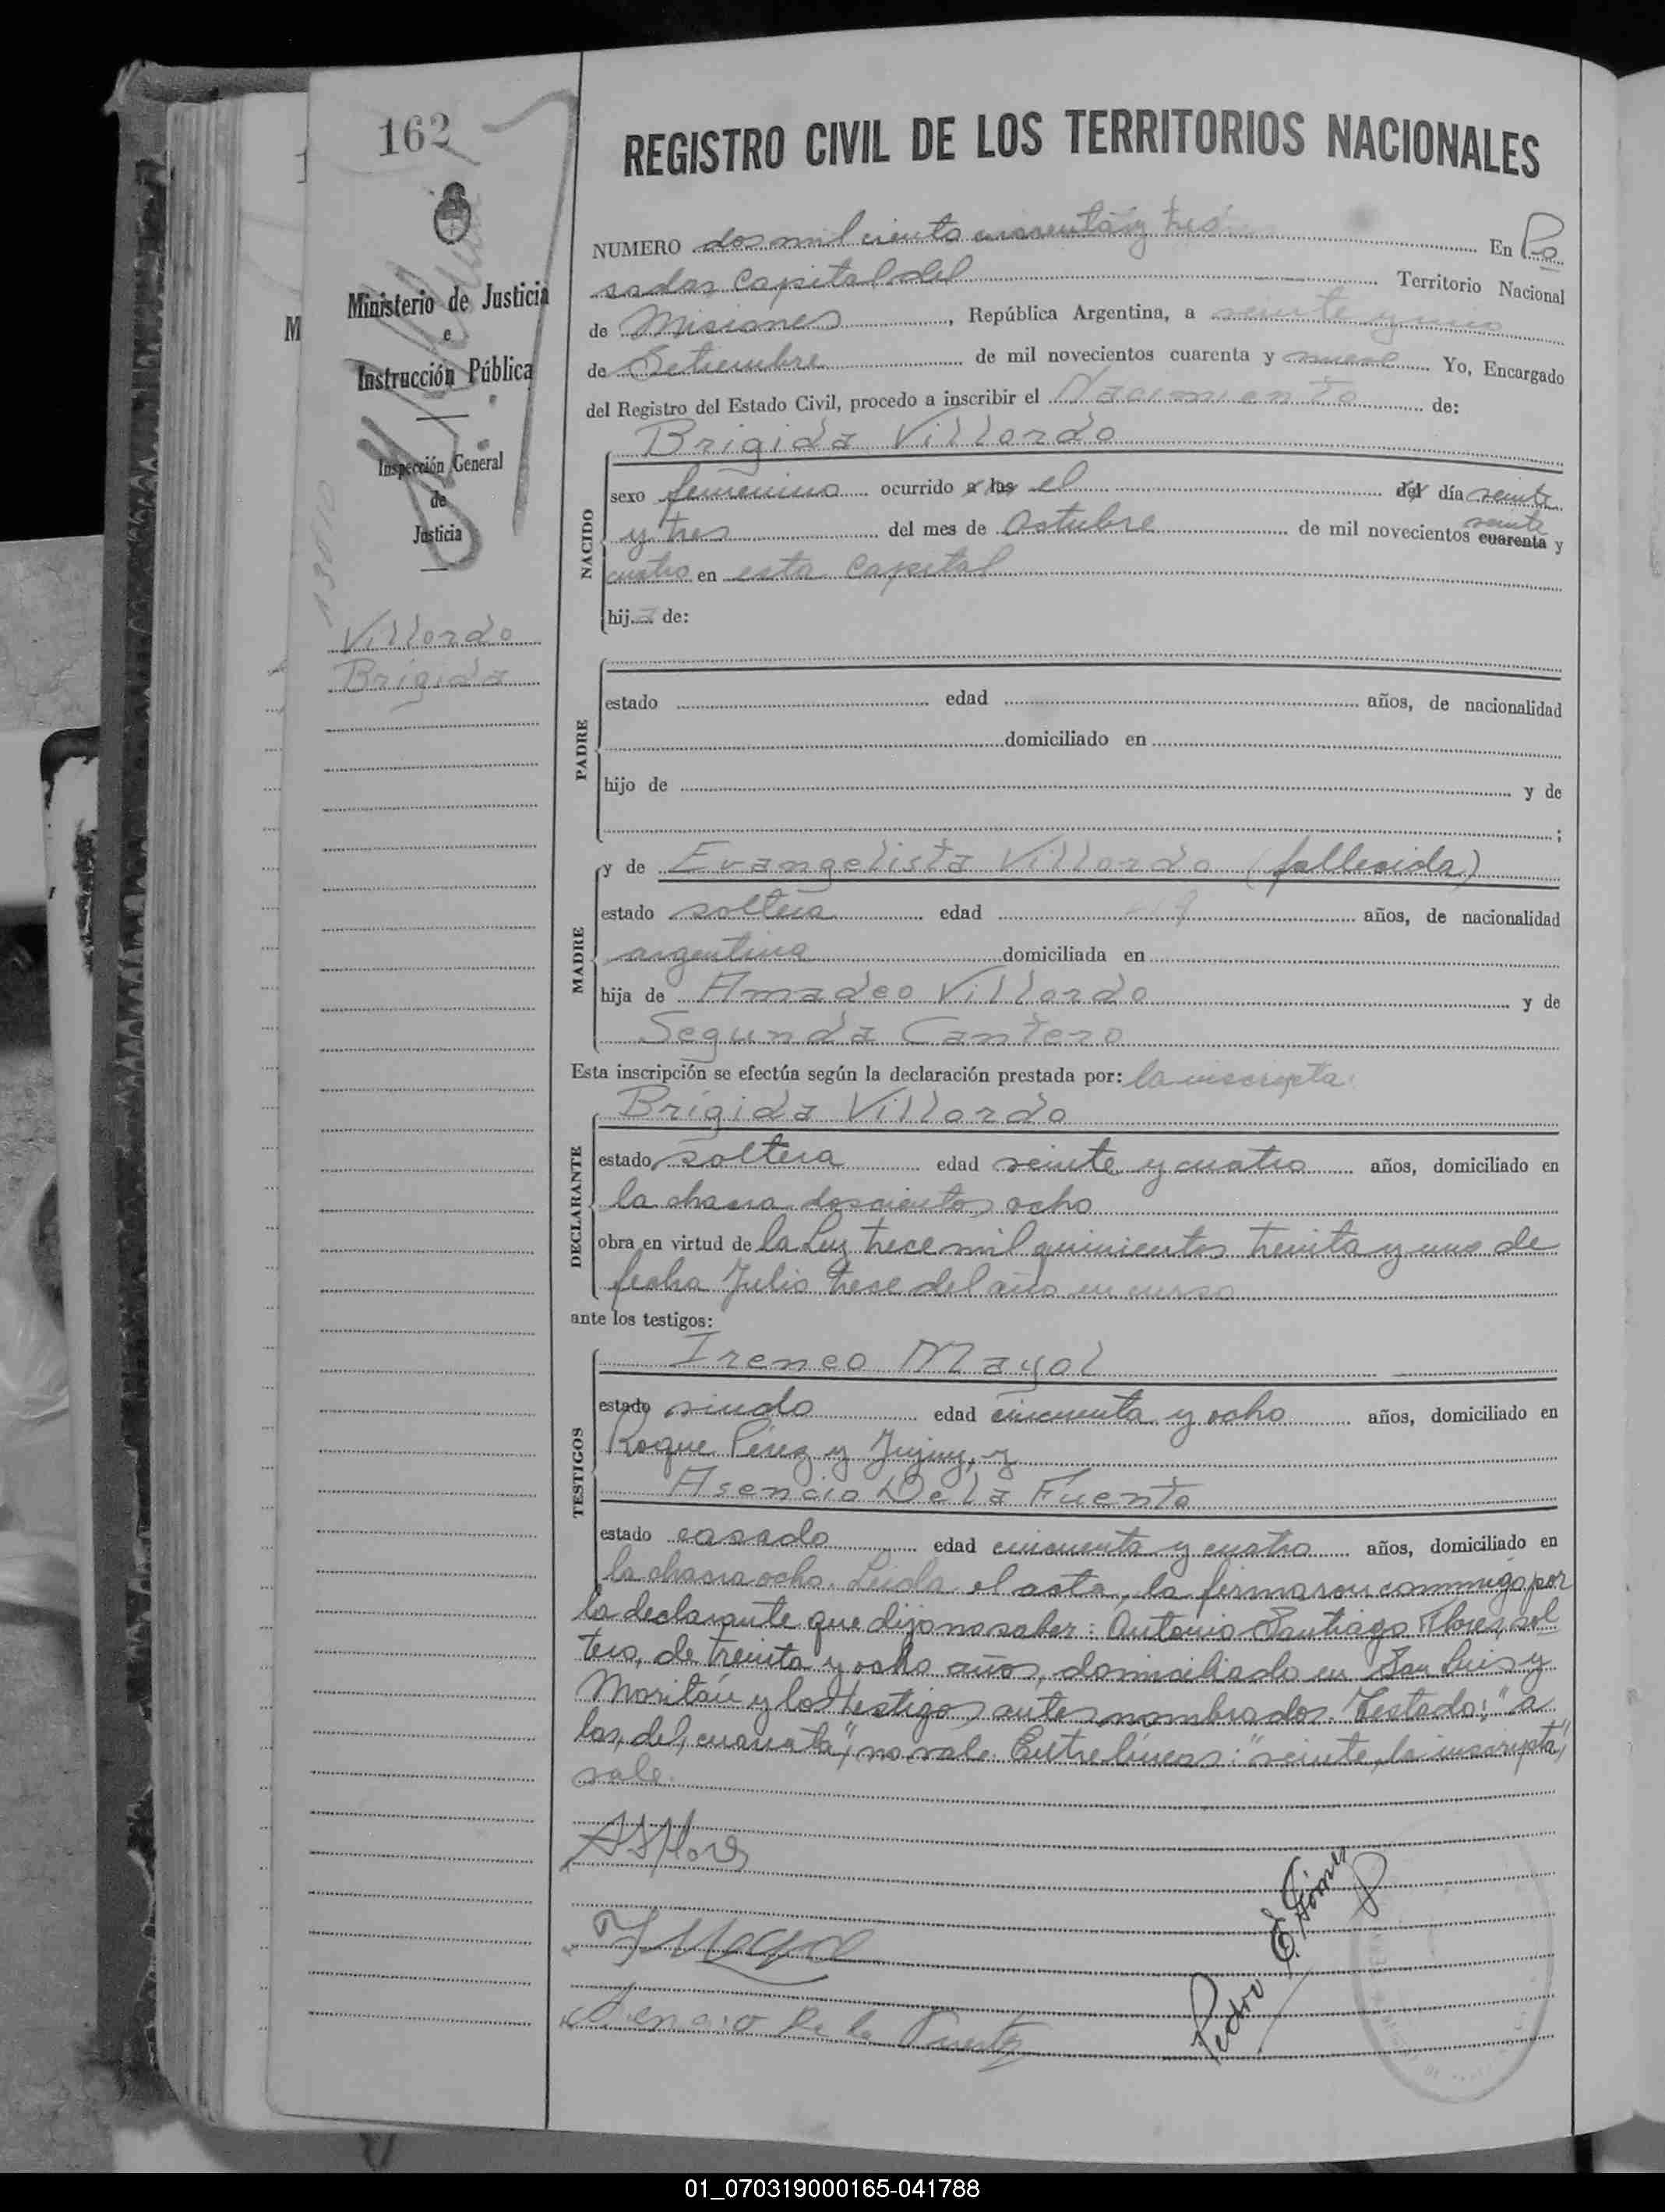 162
Ministerio de Justicia
e
Instrucción Pública
Inspección General
de
Justicia
Villordo
Brigida
REGISTRO CIVIL DE LOS TERRITORIOS NACIONALES
NUMERO dos mil ciento cuarenta y tres En Po
sadas capital del Territorio Nacional
de Misiones, República Argentina, a veinte y uno
de Setiembre de mil novecientos cuarenta y nueve Yo, Encargado
del Registro del Estado Civil, procedo a inscribir el Nacimiento de:
Brigida Villordo
NACIDO
sexo femenino ocurrido a las el del día veinte
y tres del mes de Octubre de mil novecientos cuarenta veinte y
cuatro en esta Capital
hija de:
PADRE
estado edad años, de nacionalidad
domiciliado en
hijo de y de
;
MADRE
y de Evangelista Villordo (fallecida)
estado soltera edad años, de nacionalidad
argentina domiciliada en
hija de Amadeo Villordo y de
Segunda Cantero
Esta inscripción se efectúa según la declaración prestada por: la inscripta
DECLARANTE
Brigida Villordo
estado soltera edad veinte y cuatro años, domiciliado en
la chacra doscientos ocho
obra en virtud de la Ley trece mil quinientos treinta y uno de
fecha Julio trece del año en curso
ante los testigos:
TESTIGOS
Ireneo Mayol
estado viudo edad cincuenta y ocho años, domiciliado en
Roque Pérez y Jujuy, y
Asencio De la Fuente
estado casado edad cincuenta y cuatro años, domiciliado en
la chacra ocho. Leida el acta, la firmaron conmigo por
la declarante que dijo no saber: Antonio Santiago Flores, sol
tero, de treinta y ocho años, domiciliado en San Luis y
Moritán y los testigos antes nombrados. Testado: "a
las, del, cuarenta", no vale. Entrelíneas: "veinte, la inscripta",
vale.
ASFlores
I Mayol
Asencio De la Fuente
Pedro E. Gómez
01_070319000165-041788